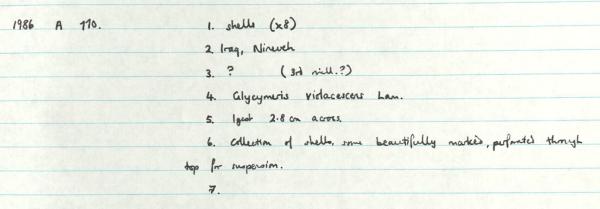 1986 A 770. 1. shells (x8)
2. Iraq, Nineveh
3. ? (3rd mill.?)
4. Glycymeris violacescens Lam.
5. lgest 2.8 cm across.
6. Collection of shells, some beautifully marked, perforated through
top for suspension.
7.